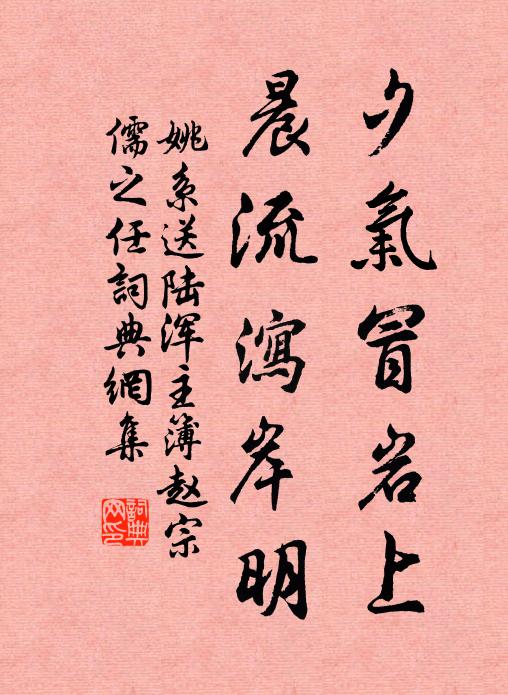 夕氣冒岩上
晨流瀉岸明
姚系送陆浑主簿赵宗
儒之任詞典網集
詞典
网印